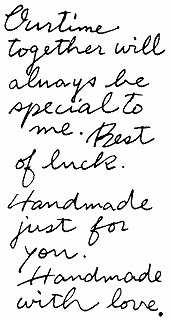 Our time
together will
always be
special to
me. Best
of luck.
Handmade
just for
you.
Handmade
with love.